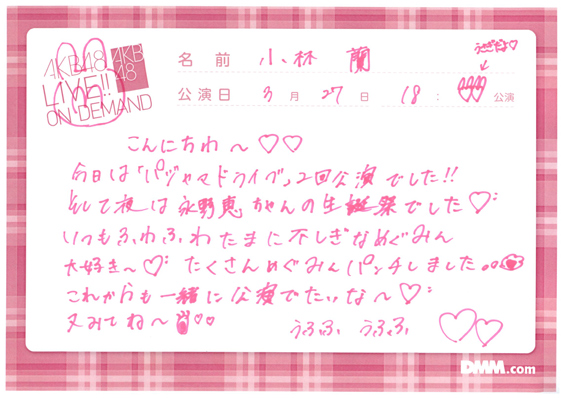 AKB48
LIVE!!
ON DEMAND
AKB
48
うさぎだよ♡
名前 小林 蘭
公演日 3月27日 18:♡♡公演
こんにちわ〜♡♡
今日は「パジャマドライブ」2回公演でした!!
そして夜は永野恵ちゃんの生誕祭でした♡
いつもふわふわたまに不しぎなめぐみん
大好き〜♡ たくさんめぐみんパンチしました。
これからも一緒に公演でたいな〜♡
又みてね〜♡♡ うふふ うふふ
DMM.com